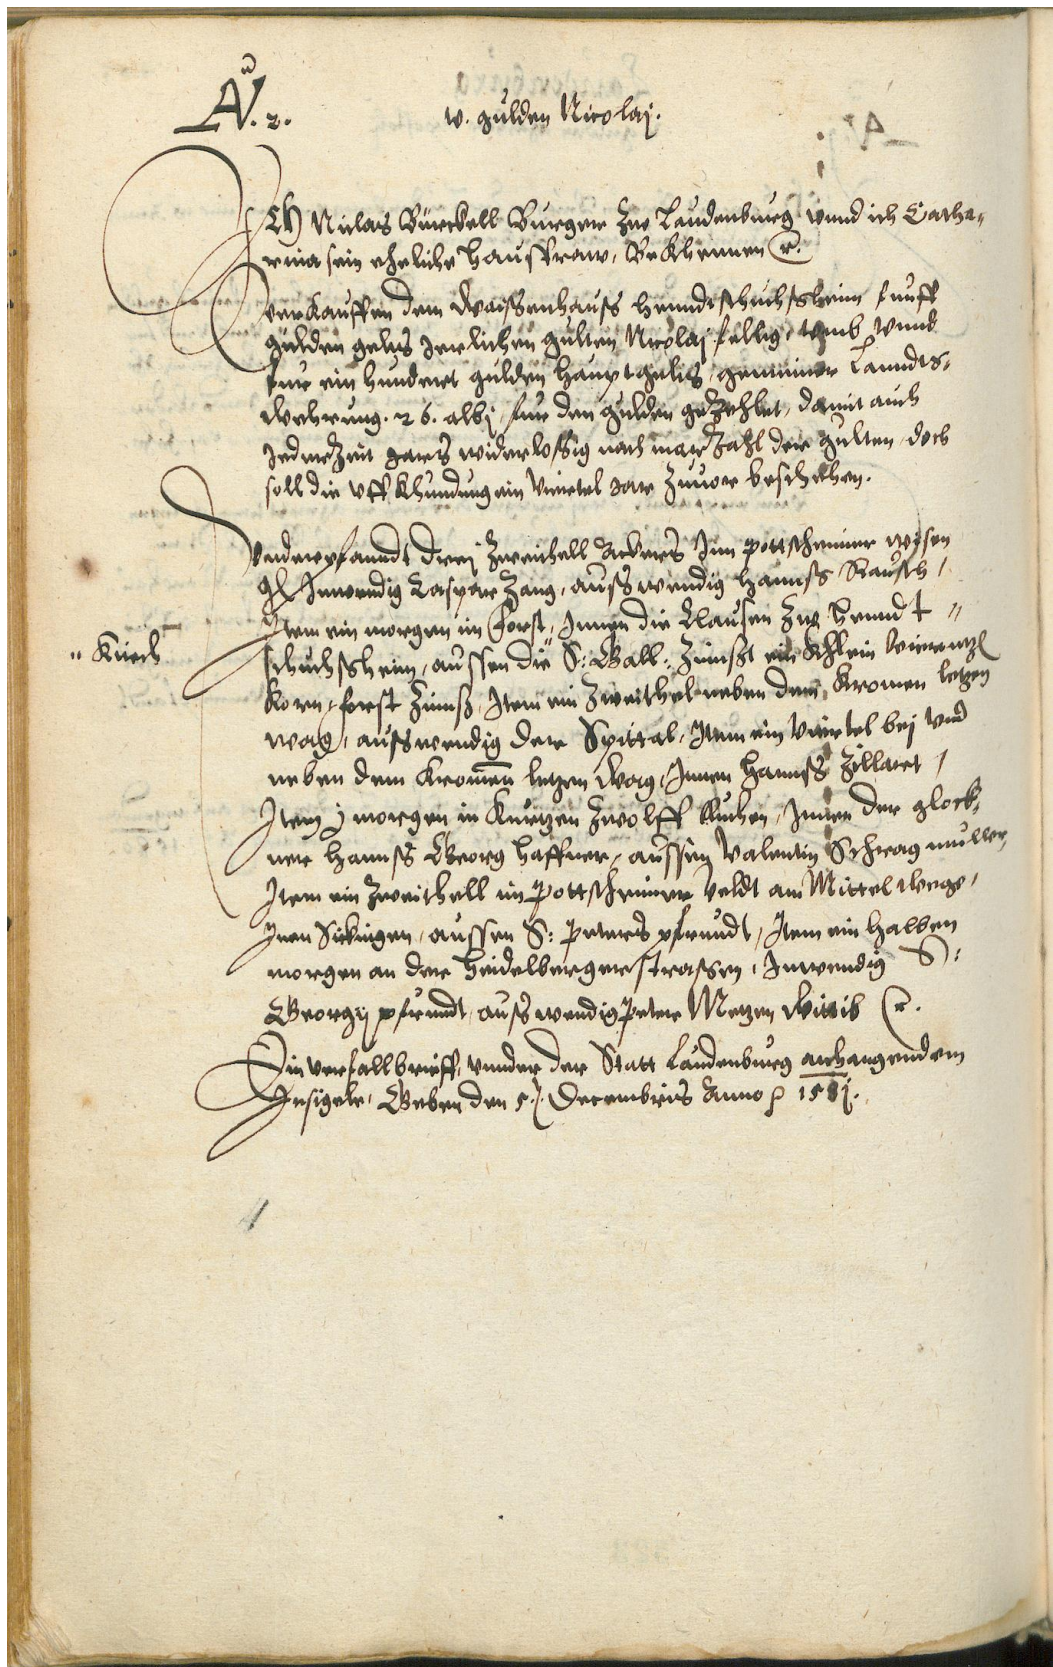 N. 2.
v. gulden Nicolaj.
ICH Niclas Bürckell Burger zue Laudenburg vnnd ich Catha-
rina sein eheliche Hausfraw, Bekhennen &c.
verkauffen dem Waissenhauß Henndtschuchßheim funff
gulden gelts Jerlichen gulten Nicolaj fellig, vmb vnnd
fur ein hundert gulden hauptgelts, gemeiner Lanndts-
wehrung. 26. albj fur den gulden gezehlet, damit auch
Jederzeit gar widerlosig nach marzahl der gulten, doch
soll die vffkhundung ein viertel Jar zuuor beschehen.
Vnderpfanndt drej zweithell Ackers Inn pottschemer wysen
Inwendig Caspar Zang, ausswendig Hannß Rausch,
Item ein morgen im forst, Innen die Clausen zue Hendt "
schuchßheim, aussen die S: Gall: Zinnßt ein Khlein vierntzel
" Kürch
korn, forst Zinnß, Item ein zweithel neben dem Kromen letzen
wag, ausswendig der Spittal, Item ein viertel bej vnd
neben dem Kromen letzen wag, Innen Hannß Zillaret,
Item j morgen in Kurtzen Zwolff Ruhen, Innen der glock-
ner Hannß Georg Haffner, aussen Valentin Schragmuller,
Item ein zweithell im pottschemer Veldt am Mittel wege,
Inen Sickingen, aussen S: Peters pfrundt, Item ein halben
morgen an der Heidelberger strassen, Inwendig S:
Georgij pfrundt, ausswendig Peter Metzen Wittib &c.
Ein versallbrieff, vnnder der Statt Laudenburg anhangendem
Insigele, Geben den 5. Decembris Anno &c 158j.